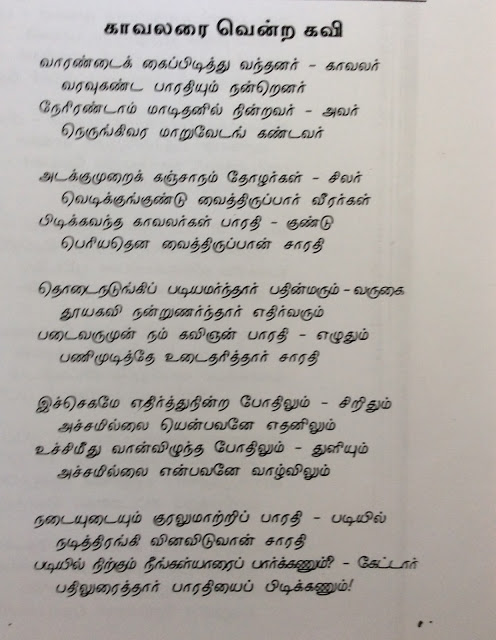 காவலரை வென்ற கவி
வாரண்டைக் கைப்பிடித்து வந்தனர் – காவலர்
வரவுகண்ட பாரதியும் நன்றெனர்
நேரிரண்டாம் மாடிதனில் நின்றவர் – அவர்
நெருங்கிவர மாறுவேடங் கண்டவர்
அடக்குமுறைக் கஞ்சாநம் தோழர்கள் – சிலர்
வெடிக்குங்குண்டு வைத்திருப்பார் வீரர்கள்
பிடிக்கவந்த காவலர்கள் பாரதி – குண்டு
பெரியதென வைத்திருப்பான் சாரதி
தொடைநடுங்கிப் படியமர்ந்தார் பதின்மரும் – வருகை
தூயகவி நன்றுணர்ந்தார் எதிர்வரும்
படைவருமுன் நம் கவிஞன் பாரதி – எழுதும்
பணிமுடித்தே உடைதரித்தார் சாரதி
இச்செகமே எதிர்த்துநின்ற போதிலும் – சிறிதும்
அச்சமில்லை யென்பவனே எதனிலும்
உச்சிமீது வான்விழுந்த போதிலும் – துளியும்
அச்சமில்லை என்பவனே வாழ்விலும்
நடையுடையும் குரலுமாற்றிப் பாரதி – படியில்
நடித்திரங்கி வினவிடுவான் சாரதி
படியில் நிற்கும் நீங்கள்யாரைப் பார்க்கணும்? – கேட்டார்
பதிலுரைத்தார் பாரதியைப் பிடிக்கணும்!